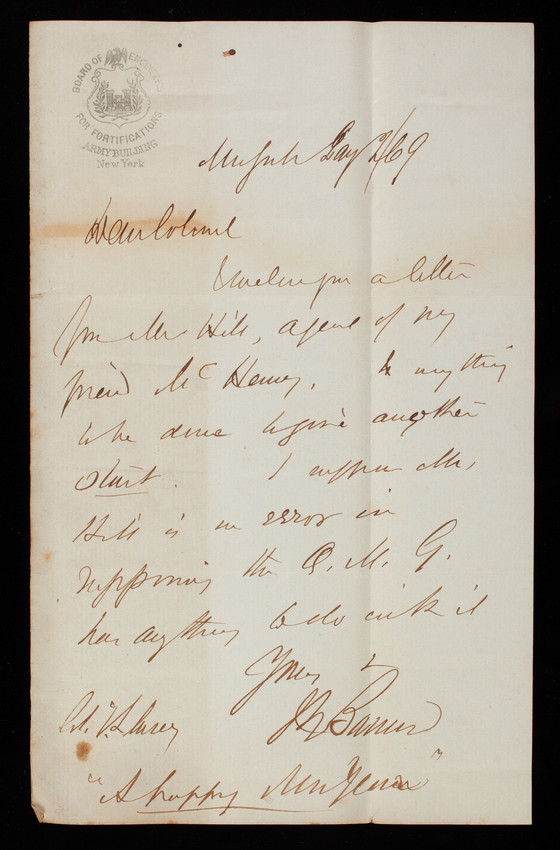 BOARD OF ENGINEERS
FOR FORTIFICATIONS
ARMY BUILDING
New York
New York Jany 2/69
Dear Colonel
I enclose you a letter
from Mr Hill, agent of my
friend McHenry. Is anything
to be done to give another
start. I suppose Mr.
Hill is in error in
supposing the Q. M. G.
has anything to do with it
Yours
Col. T. L. Casey
J G Barnard
"A happy New Year"